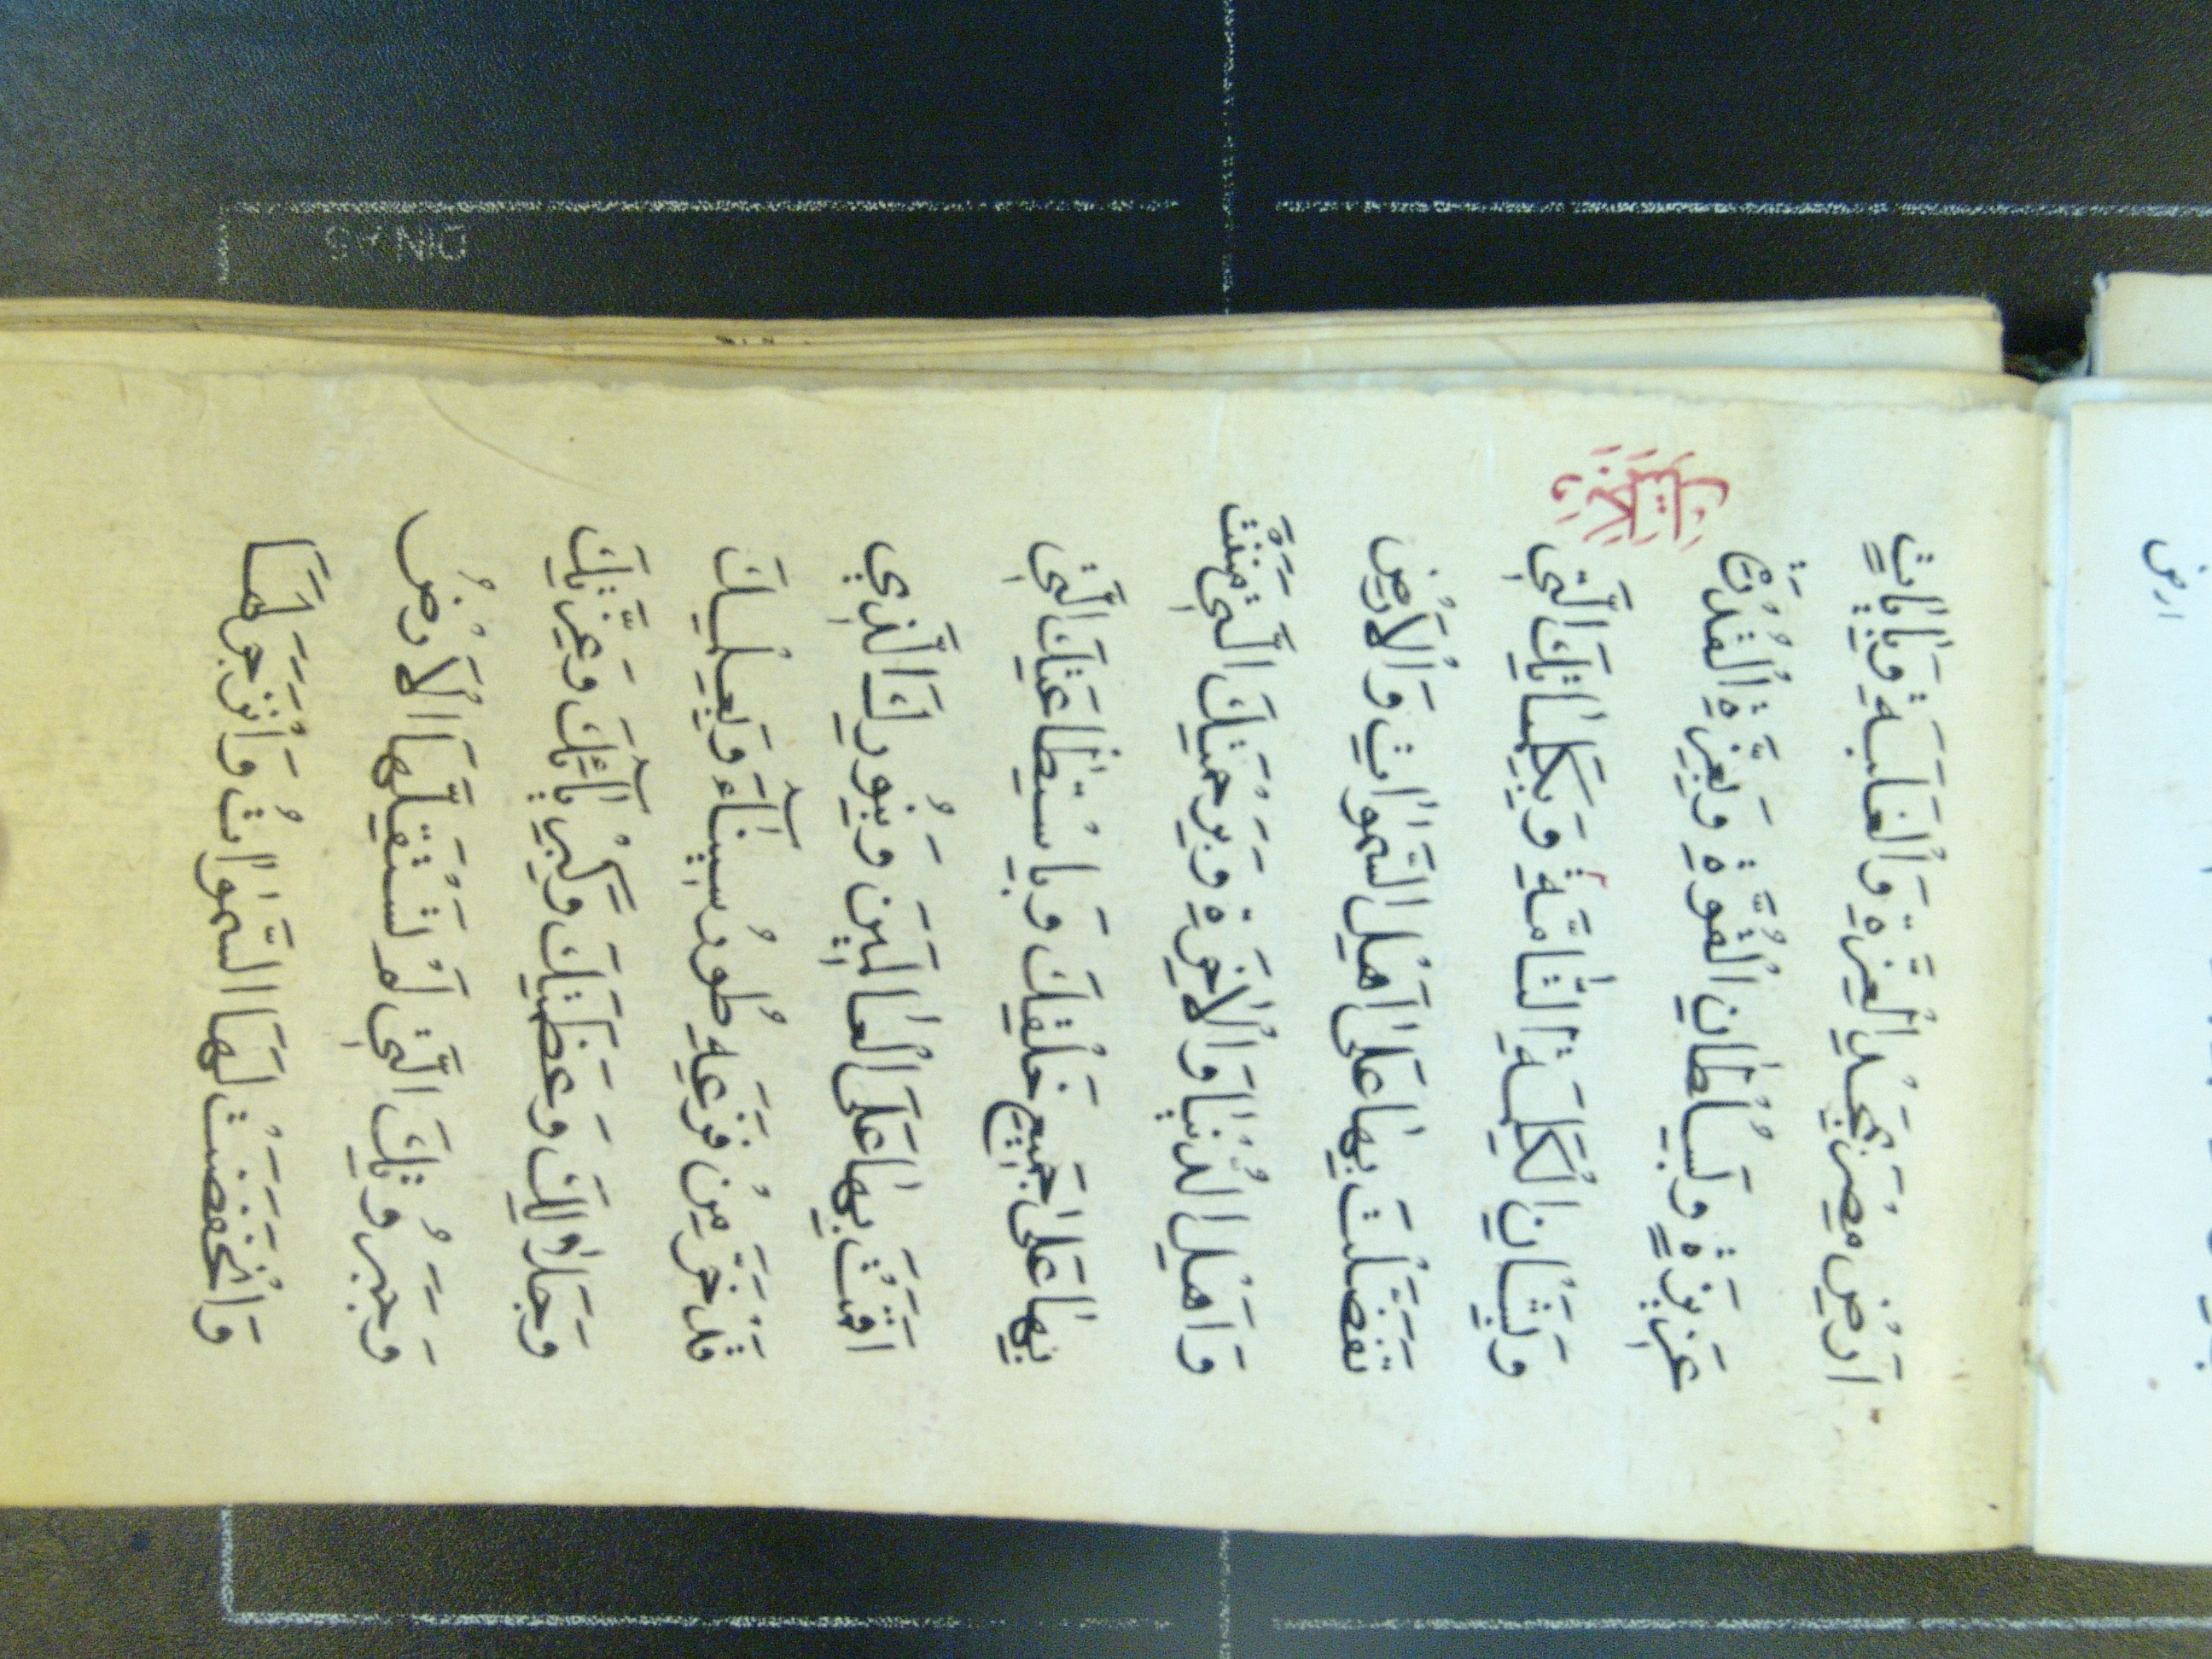 DIN A5
ارض
اَرْضِ مِصْرَ بِمَجْدِ الْعِزَّةِ وَالْغَلَبَةِ وَبِاٰيَاتٍ
عَزِيزَةٍ وَبِسُلْطَانِ الْقُوَّةِ وَبِعِزَّةِ الْقُدْرَةِ
وَبِشَاْنِ الْكَلِمَةِ التَّامَّةِ وَبِكَلِمَاتِكَ الَّتِي
تَفَضَّلْتَ بِهَا عَلَى اَهْلِ السَّمٰوَاتِ وَالْاَرْضِ
وَاَهْلِ الدُّنْيَا وَالْاٰخِرَةِ وَبِرَحْمَتِكَ الَّتِي مَنَنْتَ
بِهَا عَلَى جَمِيعِ خَلْقِكَ وَبِاسْتِطَاعَتِكَ الَّتِي
اَقَمْتَ بِهَا عَلَى الْعَالَمِينَ وَبِنُورِكَ الَّذِي
قَدْ خَرَّ مِنْ فَزَعِهِ طُورُ سِينَآءَ وَبِعِلْمِكَ
وَجَلَالِكَ وَعَظَمَتِكَ وَكِبْرِيَآئِكَ وَعِزَّتِكَ
وَجَبَرُوتِكَ الَّتِي لَمْ تَسْتَقِلَّهَا الْاَرْضُ
وَانْخَفَضَتْ لَهَا السَّمٰوَاتُ وَانْزَجَرَ لَهَا